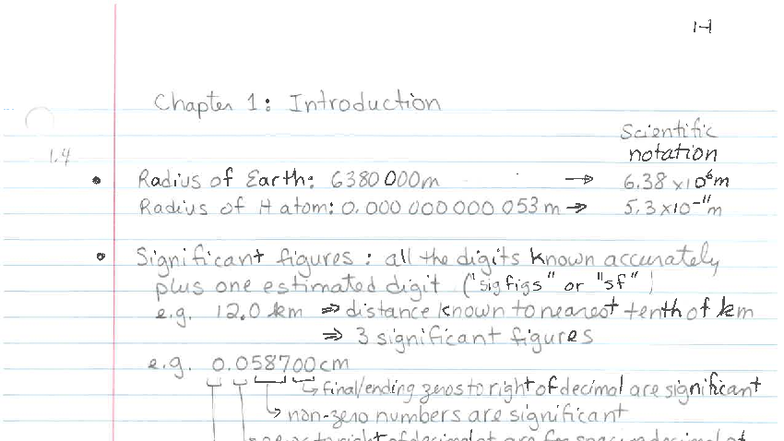 1-1
Chapter 1: Introduction
Scientific
1.4 notation
• Radius of Earth: 6380 000m → 6.38 x10⁶m
Radius of H atom: 0.000 000 000 053 m → 5.3x10⁻¹¹m
• Significant figures: all the digits known accurately
plus one estimated digit ("sigfigs" or "sf")
e.g. 12.0 km ⇒ distance known to nearest tenth of km
⇒ 3 significant figures
e.g. 0.058700cm
↳ final/ending zeros to right of decimal are significant
↳ non-zero numbers are significant
to right of decimal are for spacing decimal pt